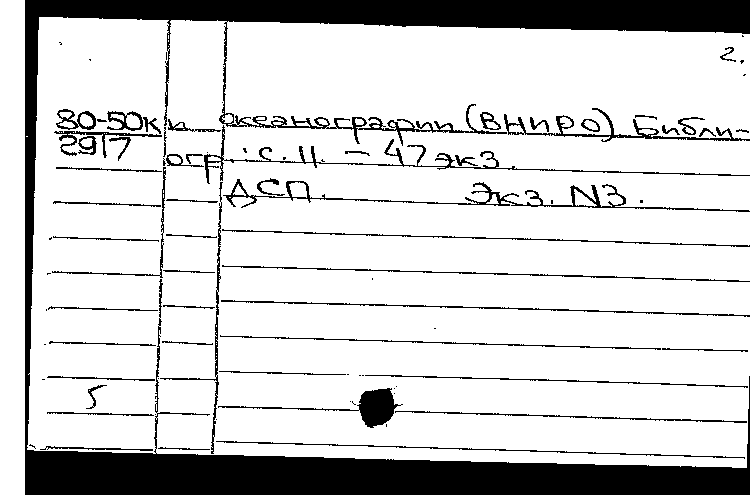 2.
80-50к и океанографии (ВНИРО) Библи-
2917 огр.: с. 11. – 47 экз.
ДСП. Экз. N3.
5